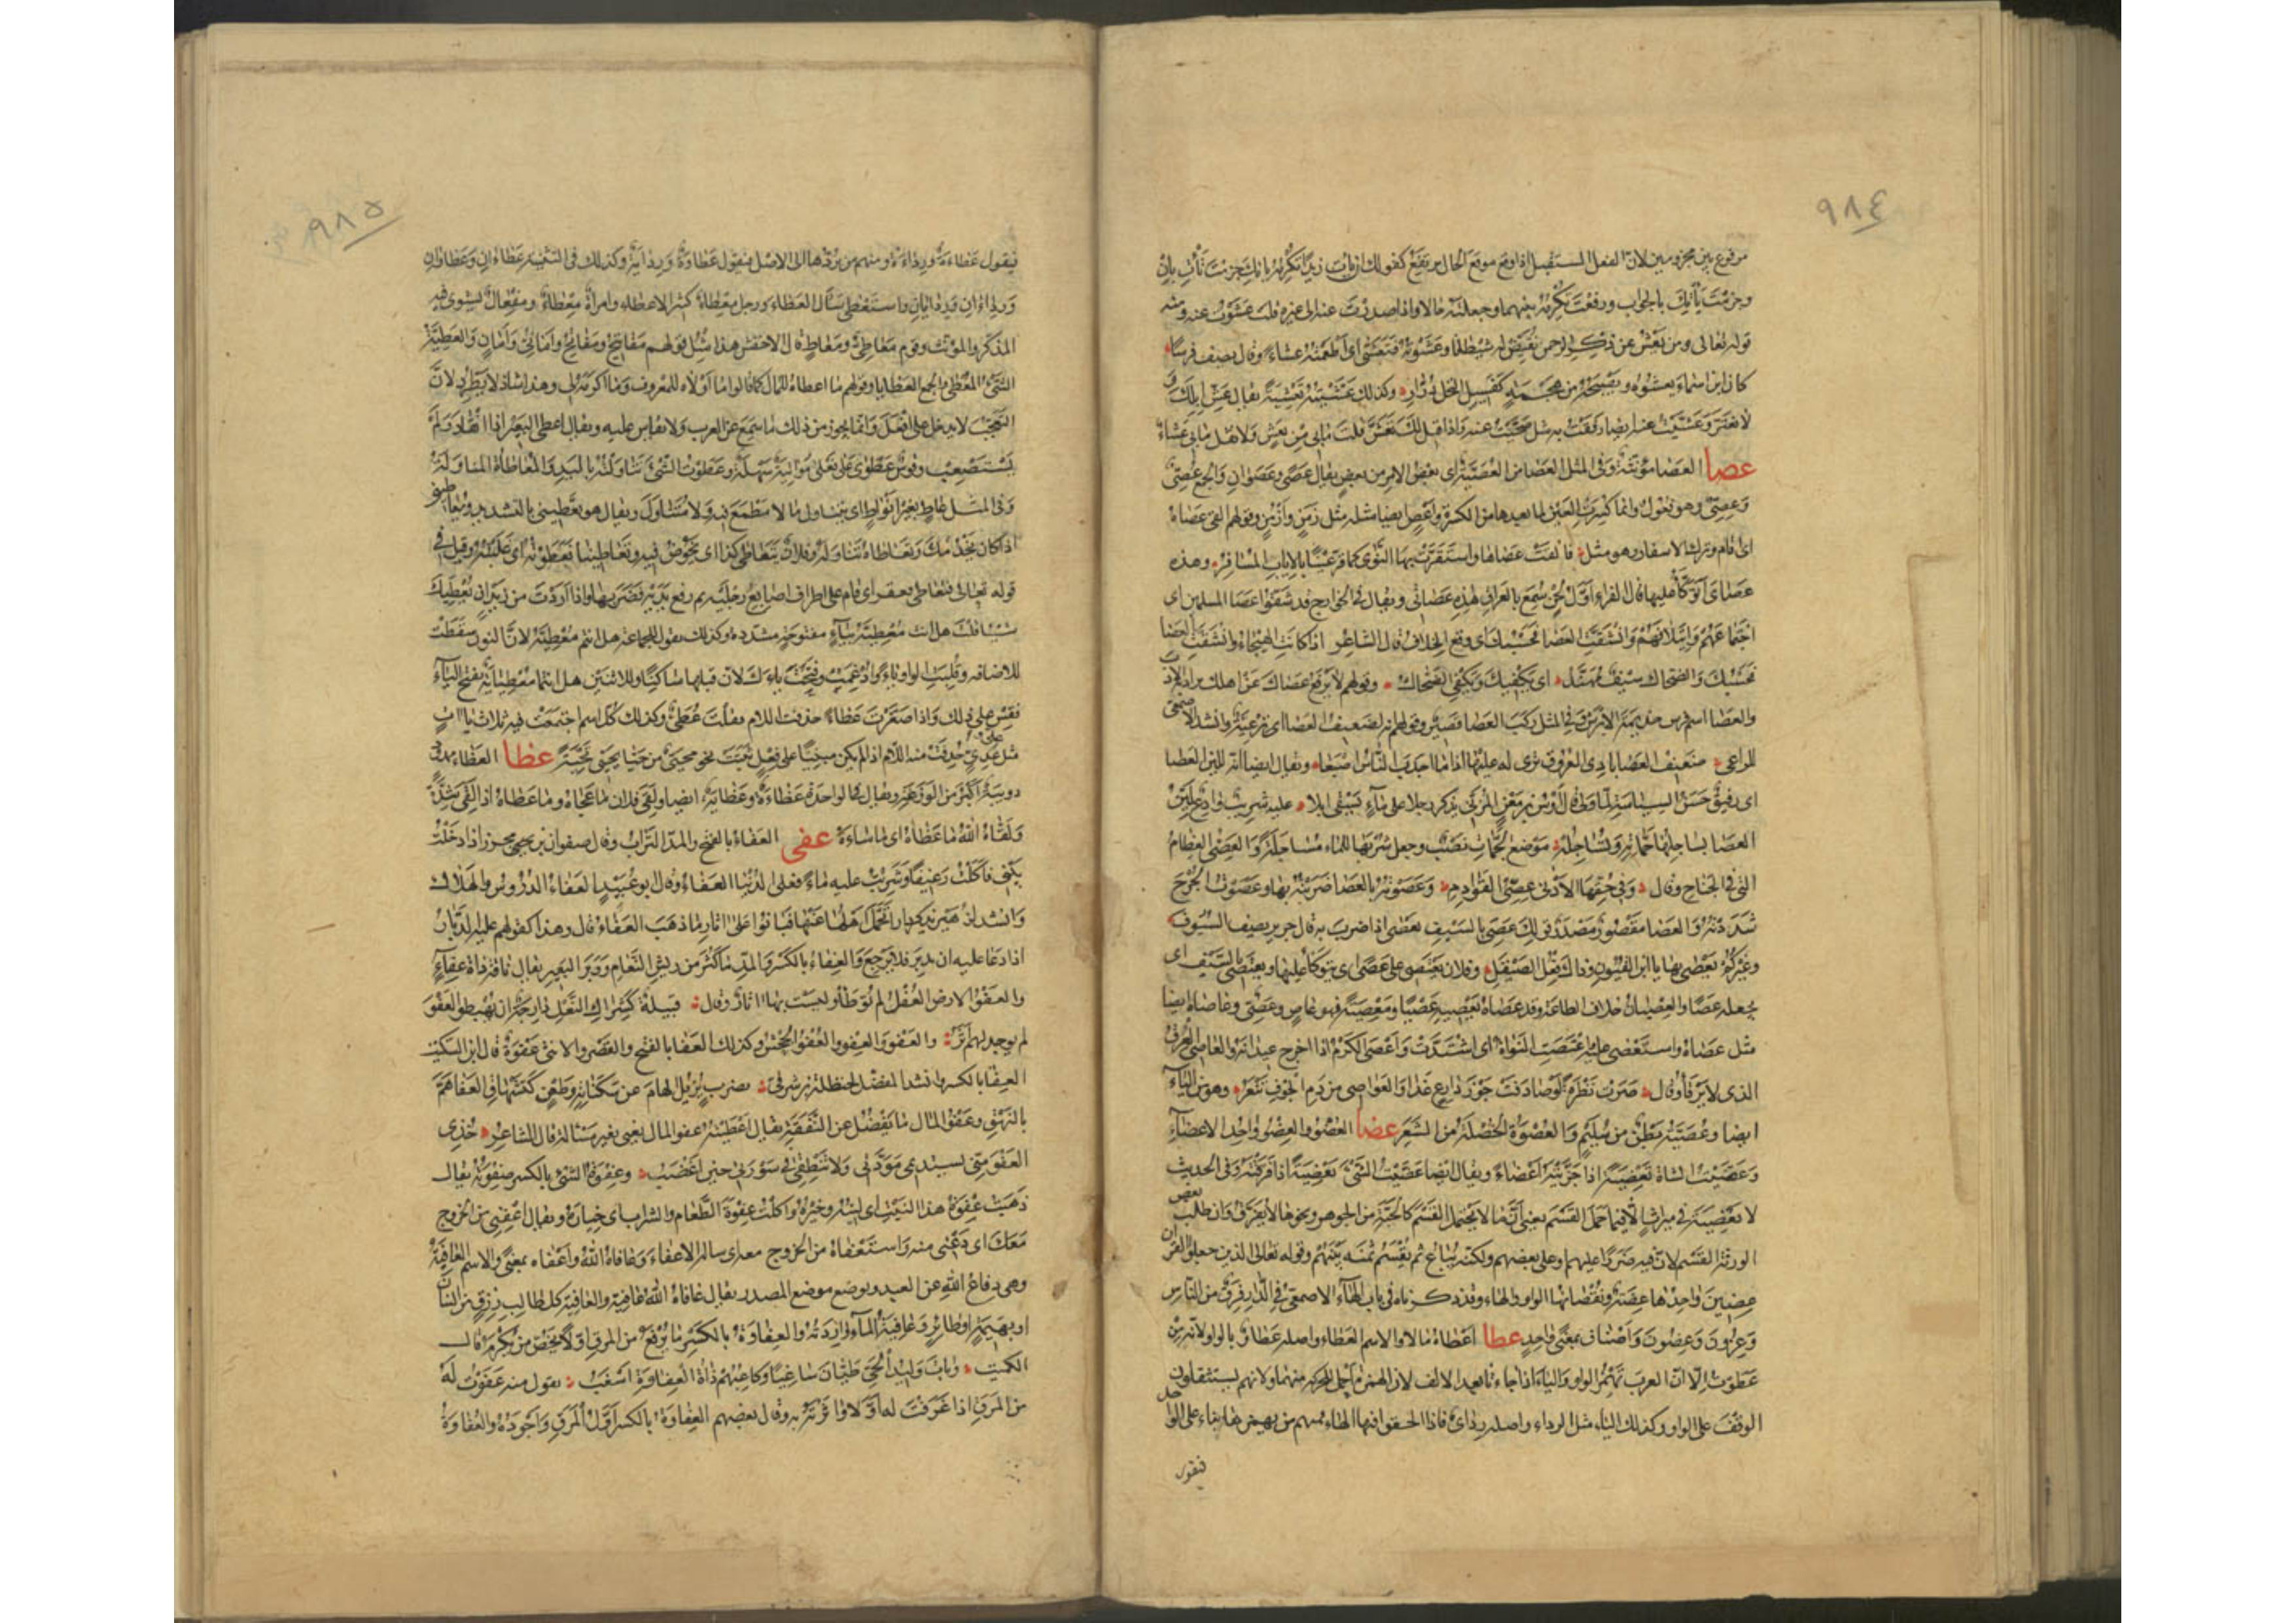 ٩٨٤
مرفوع بين مجزومين لان الفعل المستقبل اذا وقع موقع الحال يرتفع كقولك ان تأت زيدا تكرمه يأتك جزمت تأت بان
وجزمت يأتك بالجواب ورفعت تكرمه بينهما وجعلته حالا واذا صدرت عنه الى غيره قلت عشوت عنه ومنه
قوله تعالى ومن يعش عن ذكر الرحمن نقيض له شيطانا وعشوته فتعشى اى اطعمته عشاء وقال يصف فرسا
كان ابن اسماء يعشوه ويصبحه من هجمة كفسيل النخل درار وكذلك عشيته تعشية يقال عش ابلك و
لا تغتر وعشيت عنه ايضا رفقت به مثل ضحيت عنه واذا قيل لك تعش قلت ما بى من تعش ولا تقل ما بى عشاء
عصا العصا مؤنثة وفى المثل العصا من العصية اى بعض الامر من بعض يقال عصى وعصوان والجمع عصى
وعصى وهو فعول وانما كسرت العين لما بعدها من الكسرة واعص ايضا مثله مثل زمن وازمن وقولهم القى عصاه
اى اقام وترك الاسفار وهو مثل فالقت عصاها واستقرت بها النوى كما قر عينا بالاياب المسافر وهذه
عصاى اتوكأ عليها قال الفراء اول لحن سمع بالعراق هذه عصاتى ويقال فى الخوارج قد شقوا عصا المسلمين اى
اجتماعهم وائتلافهم وانشقت العصا اى وقع الخلاف قال الشاعر اذا كانت الهيجاء وانشقت العصا
فحسبك والضحاك سيف مهند اى يكفيك ويكفى الضحاك وقولهم لا ترفع عصاك عن اهلك يراد به الادب
والعصا اسم فرس جذيمة الابرش وفى المثل ركب العصا قصير وقولهم انه لضعيف العصا اى ترعية وانشد الاصمعى
للراعى ضعيف العصا بادى العروق ترى له عليها اذا ما اجدب الناس اصبعا ويقال ايضا انه للين العصا
اى رفيق حسن السياسة لما ولى قال اوس بن معن المزنى يذكر رجلا على ماء يسقى ابلا عليه شريب وادع لين
العصا يساجلها جماته وتساجله موضع الجمات نصب وجعل شربها للماء مساجلة والعصى العظام
التى فى الجناح وقال وفى حقها الادنى عصى القوادم وعصوته بالعصا ضربته بها وعصوت الجرح
شددته والعصا مقصور مصدر قولك عصى بالسيف يعصى اذا ضرب به قال جرير يصف السيوف
وغيركم يعصى بها يا ابن القيون وذاك فعل الصيقل وفلان يعتصى على عصى اى يتوكأ عليها ويعتصى بالسيف اى
يجعله عصا والعصيان خلاف الطاعة وقد عصاه يعصيه عصيا ومعصية فهو عاص وعصى وعاصاه ايضا
مثل عصاه واستعصى عليه اعتصت النواة اى اشتدت واعصى الكرم اذا اخرج عيدانه والعاصى العرق
الذى لا يرقأ وقال صرت نظرة لو صادفت جوز دارع غدا والعواصى من دم الجوف تنعر وهو من الياء
ايضا وعصية بطن من سليم والعصوة الخصلة من الشعر عضا العضو والعضو واحد الاعضاء
وعضيت الشاة تعضية اذا جزيتها اعضاء ويقال ايضا عضيت الشئ تعضية اذا فرقته وفى الحديث
لا تعضية فى ميراث الا فيما حمل القسم يعنى ان ما لا يحتمل القسم كالحبة من الجوهر ونحوها لا يفرق وان طلب بعض
الورثة القسم لان فيه ضررا عليهم او على بعضهم ولكنه يباع ثم يقسم ثمنه بينهم وقوله تعالى الذين جعلوا القرآن
عضين واحدها عضة ونقصانها الواو والهاء وقد ذكرناه فى باب الهاء الاصمعى فى الدار فرق من الناس
وعزون وعضون واصناف بمعنى واحد عطا اعطاه مالا والاسم العطاء واصله عطاو بالواو لانه من
عطوت الا ان العرب تهمز الواو والياء اذا جاءتا بعد الالف لان الهمز احمل للحركة منهما ولانهم يستثقلون
الوقف على الواو وكذلك الياء مثل الرداء واصله رداى فاذا الحقوا فيها الهاء فمنهم من يهمزها بناء على الواحد
فيقول
٩٨٥
فيقول عطاءة ورداءة ومنهم من يردها الى الاصل فيقول عطاوة ورداية وكذلك فى التثنية عطاءان وعطاوان
ورداءان وردايان واستعطى سأل العطاء ورجل معطاء كثير الاعطاء وامرأة معطاء ومفعال يستوى فيه
المذكر والمؤنث وقوم معاطى ومعاط قال الاخفش هذا مثل قولهم مفاتيح ومفاتح وامانى وامان والعطية
الشئ المعطى والجمع العطايا وقولهم ما اعطاه للمال كما قالوا ما اولاه للمعروف وما اكرمه لى وهذا شاذ لا يطرد لان
التعجب لا يدخل على افعل وانما يجوز من ذلك ما سمع عن العرب ولا يقاس عليه ويقال اعطى البعير اذا انقاد ولم
يستصعب وقوس عطوى على فعلى مواتية سهلة وعطوت الشئ تناولته باليد والمعاطاة المناولة
وفى المثل عاط بغير انواط اى يتناول ما لا مطمع فيه ولا متناول ويقال هو يعطينى بالتشديد ويعاطينى
اذا كان يخدمك وتعاطاه تناوله وفلان يتعاطى كذا اى يخوض فيه وتعاطينا فعطوته اى غلبته وقيل فى
قوله تعالى فتعاطى فعقر اى قام على اطراف اصابع رجليه ثم رفع يديه فضربها واذا اردت من زيد ان يعطيك
شيئا قلت هل انت معطيه بياء مفتوحة مشددة وكذلك تقول للجماعة هل انتم معطيه لان النون سقطت
للاضافة وقلبت الواو ياء وادغمت وفتحت ياءك لان قبلها ساكنا وللاثنين هل انتما معطيايه بفتح الياء
فقس على ذلك واذا صغرت عطاء حذفت اللام فقلت عطى وكذلك كل اسم اجتمعت فيه ثلاث ياآت
مثل على وعدى حذفت منه اللام اذا لم يكن مبنيا على فعل يثبت نحو محيى من حيا يحيى تحية عظا العظاء ممدود
دويبة اكبر من الوزغة ويقال فى الواحدة عظاءة وعظاية ايضا ولقى فلان ما عجاه وما عظاه اذا لقى شدة
ولقاه الله ما عظاه اى ما ساءه عفى العفاء بالفتح والمد التراب وقال صفوان بن محرز اذا دخلت
بيتى فاكلت رغيفا وشربت عليه ماء فعلى الدنيا العفاء وقال ابو عبيد العفاء الدروس والهلاك
وانشد لزهير يذكر دارا تحمل اهلها عنها فبانوا على اثار ما ذهب العفاء قال وهذا كقولهم عليه الدبار
اذا دعا عليه ان يدبر فلا يرجع والعفاء بالكسر والمد ما كثر من ريش النعام ووبر البعير يقال ناقة ذات عفاء
والعفو الارض الغفل لم توطأ وليست بها اثار وقال قبيلة كشراك النعل دارجة ان يهبطوا العفو
لم يوجد لهم اثر والعفو والعفو والعفو الجحش وكذلك العفا بالفتح والقصر والانثى عفوة قال ابن السكيت
العفا بالكسر وانشد المفضل لحنظلة بن شرقى بضرب يزيل الهام عن سكناته وطعن كتشهاق العفا هم
بالنهق وعفو المال ما يفضل عن النفقة يقال اعطيته عفو المال يعنى بغير مسألة قال الشاعر خذى
العفو منى تستديمى مودتى ولا تنطقى فى سورتى حين اغضب وعفوة الشئ بالكسر صفوته يقال
ذهبت عفوة هذا النبت اى لينه وخيره واكلت عفوة الطعام والشراب اى خياره ويقال اعفنى من الخروج
معك اى دعنى منه واستعفاه من الخروج معه اى سأله الاعفاء وعافاه الله واعفاه بمعنى والاسم العافية
وهى دفاع الله عن العبد وتوضع موضع المصدر يقال عافاه الله عافية والعافية كل طالب رزق من انسان
او بهيمة او طائر وعافية الماء واردته والعفاوة بالكسر ما يرفع من المرق اولا يخص من يكرم قال
الكميت وبات وليد الحى طيان ساغبا وكاعبهم ذات العفاوة اسغب تقول منه عفوت له
من المرق اذا غرفت له اولا واثرته به وقال بعضهم العفاوة بالكسر اول المرق واجوده والعفاوة